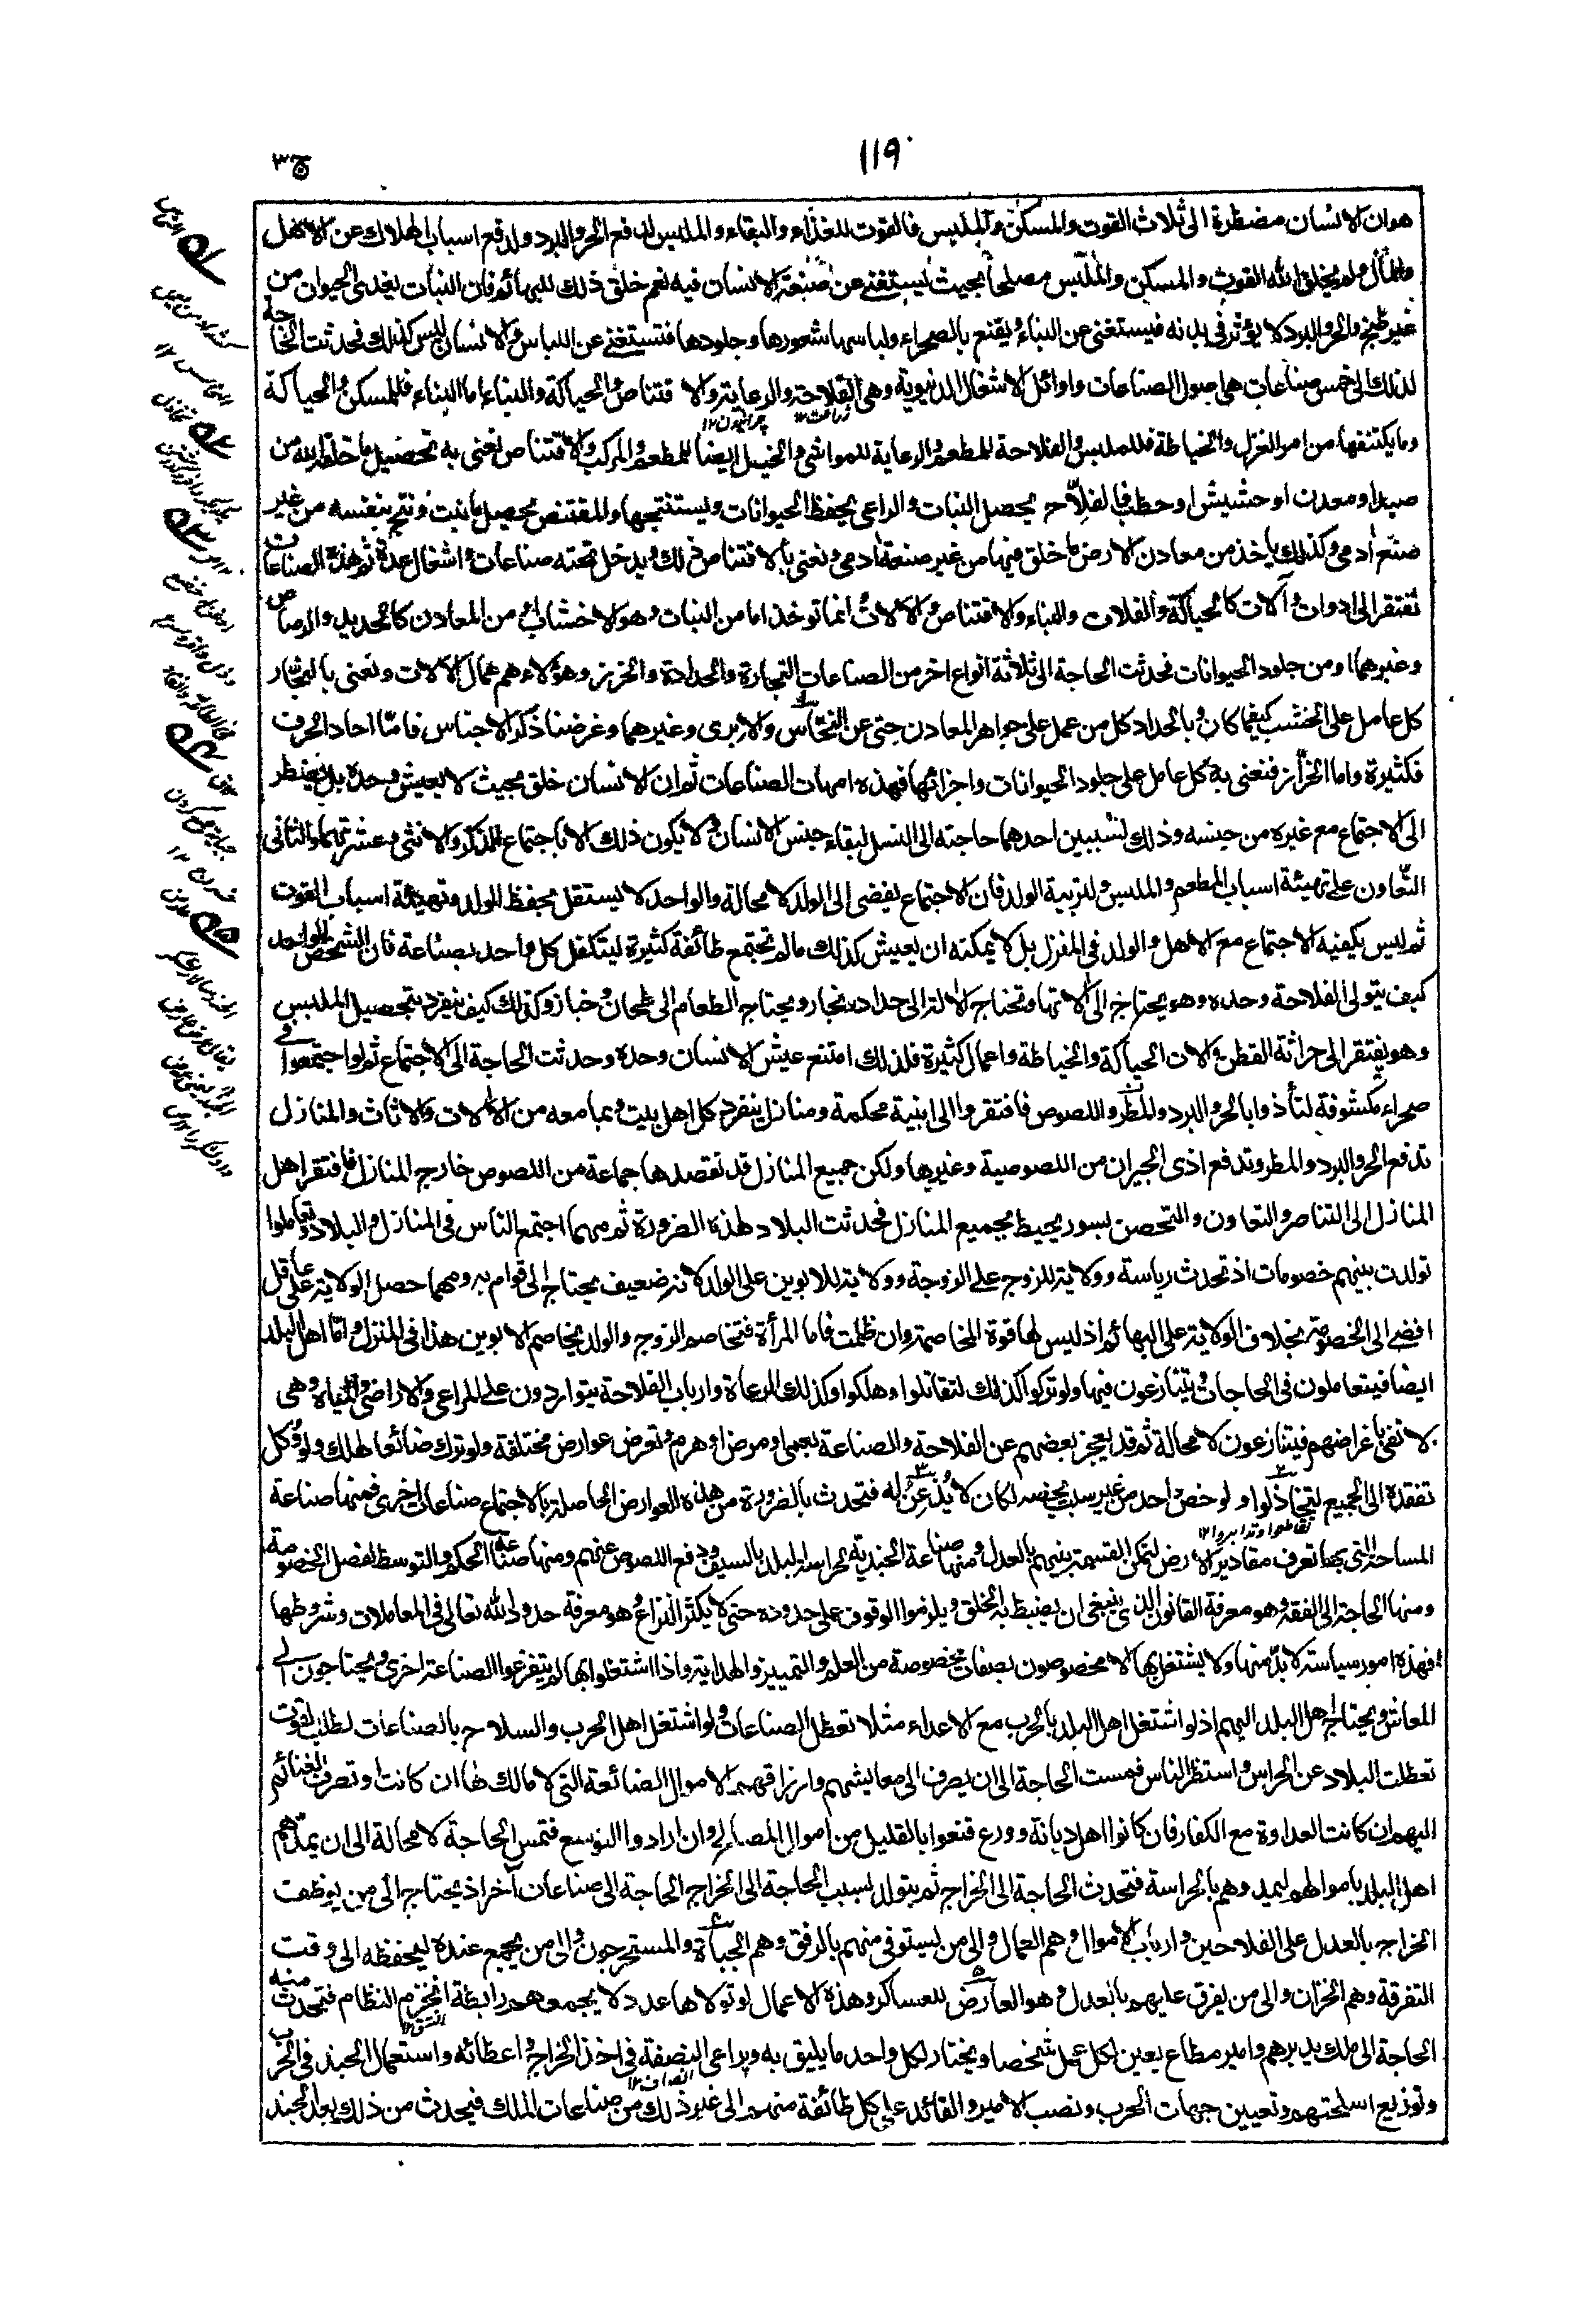 ١١٩
ج٣
هو ان الانسان مضطرة الى ثلاث القوت والمسكن والملبس فالقوت للغذاء والبقاء والملبس لدفع الحر والبرد ولدفع اسباب الهلاك عن الاهل
والمال ولم يخلق الله القوت والمسكن والملبس مصلحا بحيث يستغنى عن صنعة الانسان فيه نعم خلق ذلك للبهائم فان النبات يغذى الحيوان من
غير طبخ والحر والبرد لا يؤثر فى بدنه فيستغنى عن البناء ويقنع بالصحراء ولباسها شعورها وجلودها فتستغنى عن اللباس والانسان ليس كذلك فحدثت الحاجة
لذلك الى خمس صناعات هى اصول الصناعات واوائل الاشغال الدنيوية وهى الفلاحة والرعاية والاقتناص والحياكة والبناء اما البناء فللمسكن والحياكة
وما يكتنفها من امر الغزل والخياطة فللملبس والفلاحة للمطعم والرعاية للمواشى والخيل ايضا للمطعم والمركب والاقتناص نعنى به تحصيل ما خلقه الله من
صيد او معدن او حشيش او حطب فالفلاح يحصل النبات والراعى يحفظ الحيوانات ويستنتجها والمقتنص يحصل ما نبت ونتج بنفسه من غير
صنع آدمى وكذلك ياخذ من معادن الارض ما خلق فيها من غير صنعة آدمى ونعنى بالاقتناص ذلك ويدخل تحته صناعات واشغال عدة ثم هذه الصناعات
تفتقر الى ادوات وآلات كالحياكة والفلاحة والبناء والاقتناص والآلات انما توخذ اما من النبات وهو الاخشاب او من المعادن كالحديد والرصاص
وغيرهما او من جلود الحيوانات فحدثت الحاجة الى ثلاثة انواع اخر من الصناعات النجارة والحدادة والخرز وهؤلاء هم عمال الآلات ونعنى بالنجار
كل عامل على الخشب كيفما كان وبالحداد كل من عمل على جواهر المعادن حتى عن النحاس والابرى وغيرهما وغرضنا ذكر الاجناس فاما احاد الحرف
فكثيرة واما الخراز فنعنى به كل عامل على جلود الحيوانات واجزائها فهذه امهات الصناعات ثم ان الانسان خلق بحيث لا يعيش وحده بل يضطر
الى الاجتماع مع غيره من جنسه وذلك لسببين احدهما حاجته الى النسل لبقاء جنس الانسان ولا يكون ذلك الا باجتماع الذكر والانثى وعشرتهما والثانى
التعاون على تهيئة اسباب المطعم والملبس ولتربية الولد فان الاجتماع يفضى الى الولد لا محالة والواحد لا يستقل بحفظ الولد وتهيئة اسباب القوت
ثم ليس يكفيه الاجتماع مع الاهل والولد فى المنزل بل لا يمكنه ان يعيش كذلك ما لم تجتمع طائفة كثيرة ليتكفل كل واحد بصناعة فان الشخص الواحد
كيف يتولى الفلاحة وحده وهو يحتاج الى آلاتها وتحتاج الآلة الى حداد ونجار ويحتاج الطعام الى طحان وخباز وكذلك كيف ينفرد بتحصيل الملبس
وهو يفتقر الى حراثة القطن وآلات الحياكة والخياطة واعمال كثيرة فلذلك امتنع عيش الانسان وحده وحدثت الحاجة الى الاجتماع ثم لو اجتمعوا فى
صحراء مكشوفة لتأذوا بالحر والبرد والمطر واللصوص فافتقروا الى ابنية محكمة ومنازل ينفرد كل اهل بيت وبما معه من الآلات والاثاث والمنازل
تدفع الحر والبرد والمطر وتدفع اذى الجيران من اللصوصية وغيرها ولكن جميع المنازل قد تقصدها جماعة من اللصوص خارج المنازل فافتقر اهل
المنازل الى التناصر والتعاون والتحصن بسور يحيط بجميع المنازل فحدثت البلاد لهذه الضرورة ثم مهما اجتمع الناس فى المنازل والبلاد وتعاملوا
تولدت بينهم خصومات اذ تحدث رياسة وولاية للزوج على الزوجة وولاية للابوين على الولد لانه ضعيف يحتاج الى قوام به ومهما حصل الولاية على عاقل
افضى الى الخصومة بخلاف الولاية على البهائم اذ ليس لها قوة المخاصمة وان ظلمت فاما المرأة فتخاصم الزوج والولد يخاصم الابوين هذا فى المنزل واما اهل البلد
ايضا فيتعاملون فى الحاجات ويتنازعون فيها ولو تركوا كذلك لتقاتلوا وهلكوا وكذلك الرعاة وارباب الفلاحة يتواردون على المراعى والاراضى والمياه وهى
لا تفى باغراضهم فيتنازعون لا محالة ثم قد يعجز بعضهم عن الفلاحة والصناعة بعمى او مرض او هرم وتعرض عوارض مختلفة ولو ترك ضائعا لهلك ولو وكل
تفقده الى الجميع لتخاذلوا ولو خص واحد من غير سبب يخصه لكان لا يذعن له فتحدث بالضرورة من هذه العوارض الحاصلة بالاجتماع صناعات اخرى فمنها صناعة
المساحة التى بها تعرف مقادير الارض لتمكن القسمة بينهم بالعدل ومنها صناعة الجندية لحراسة البلد بالسيف ودفع اللصوص عنهم ومنها صناعة الحكم والتوسط لفصل الخصومة
ومنها الحاجة الى الفقه وهو معرفة القانون الذى ينبغى ان يضبط به الخلق ويلزموا الوقوف على حدوده حتى لا يكثر النزاع وهو معرفة حدود الله تعالى فى المعاملات وشروطها
فهذه امور سياسة لا بد منها ولا يشتغل بها الا مخصوصون بصفات مخصوصة من العلم والتمييز والهداية واذا اشتغلوا بها لم يتفرغوا لصناعة اخرى ويحتاجون الى
المعاش ويحتاج اهل البلد اليهم اذ لو اشتغل اهل البلد بالحرب مع الاعداء مثلا تعطل الصناعات ولو اشتغل اهل الحرب والسلاح بالصناعات لطلب القوت
تعطلت البلاد عن الحراس واستضر الناس فمست الحاجة الى ان يصرف الى معايشهم وارزاقهم الاموال الضائعة التى لا مالك لها ان كانت او تصرف الغنائم
اليهم ان كانت العداوة مع الكفار فان كانوا اهل ديانة وورع قنعوا بالقليل من اموال المصالح وان ارادوا التوسع فتمس الحاجة لا محالة الى ان يمدهم
اهل البلد باموالهم ليمدوهم بالحراسة فتحدث الحاجة الى الخراج ثم يتولد بسبب الحاجة الى الخراج الحاجة الى صناعات آخر اذ يحتاج الى من يوظف
الخراج بالعدل على الفلاحين وارباب الاموال وهم العمال والى من يستوفى منهم بالرفق وهم الجباة والمستخرجون والى من يجمع عنده ليحفظه الى وقت
التفرقة وهم الخزان والى من يفرق عليهم بالعدل وهو العارض للعساكر وهذه الاعمال لو تولاها عدد لا يجمعهم رابطة انخرم النظام فتحدث منه
الحاجة الى ملك يدبرهم وامير مطاع يعين لكل عمل شخصا ويختار لكل واحد ما يليق به ويراعى النصفة فى اخذ الخراج واعطائه واستعمال الجند فى الحرب
وتوزيع اسلحتهم وتعيين جهات الحرب ونصب الامير والقائد على كل طائفة منهم الى غير ذلك من صناعات الملك فيحدث من ذلك بعد الجند